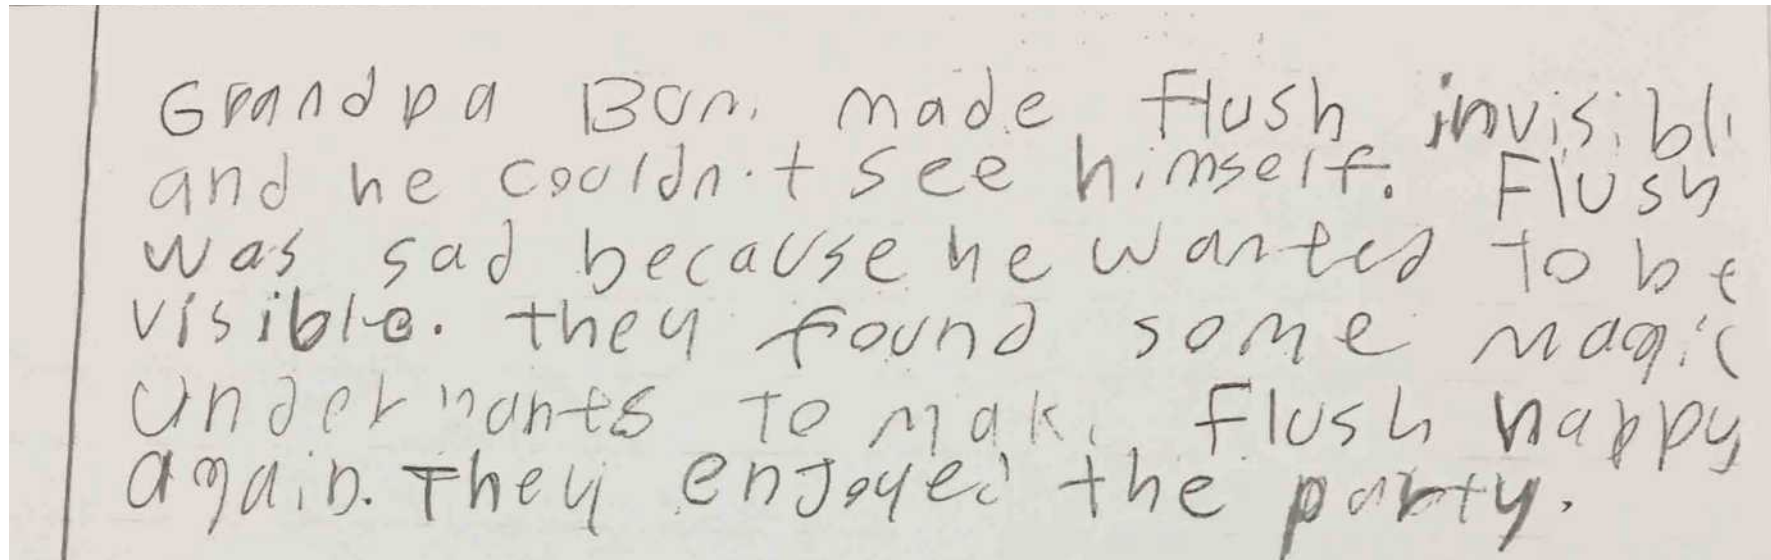 Grandpa Bum made flush invisible
and he couldn't see himself. Flush
was sad because he wanted to be
visible. they found some magic
underpants to make flush happy
again. They enjoyed the party.